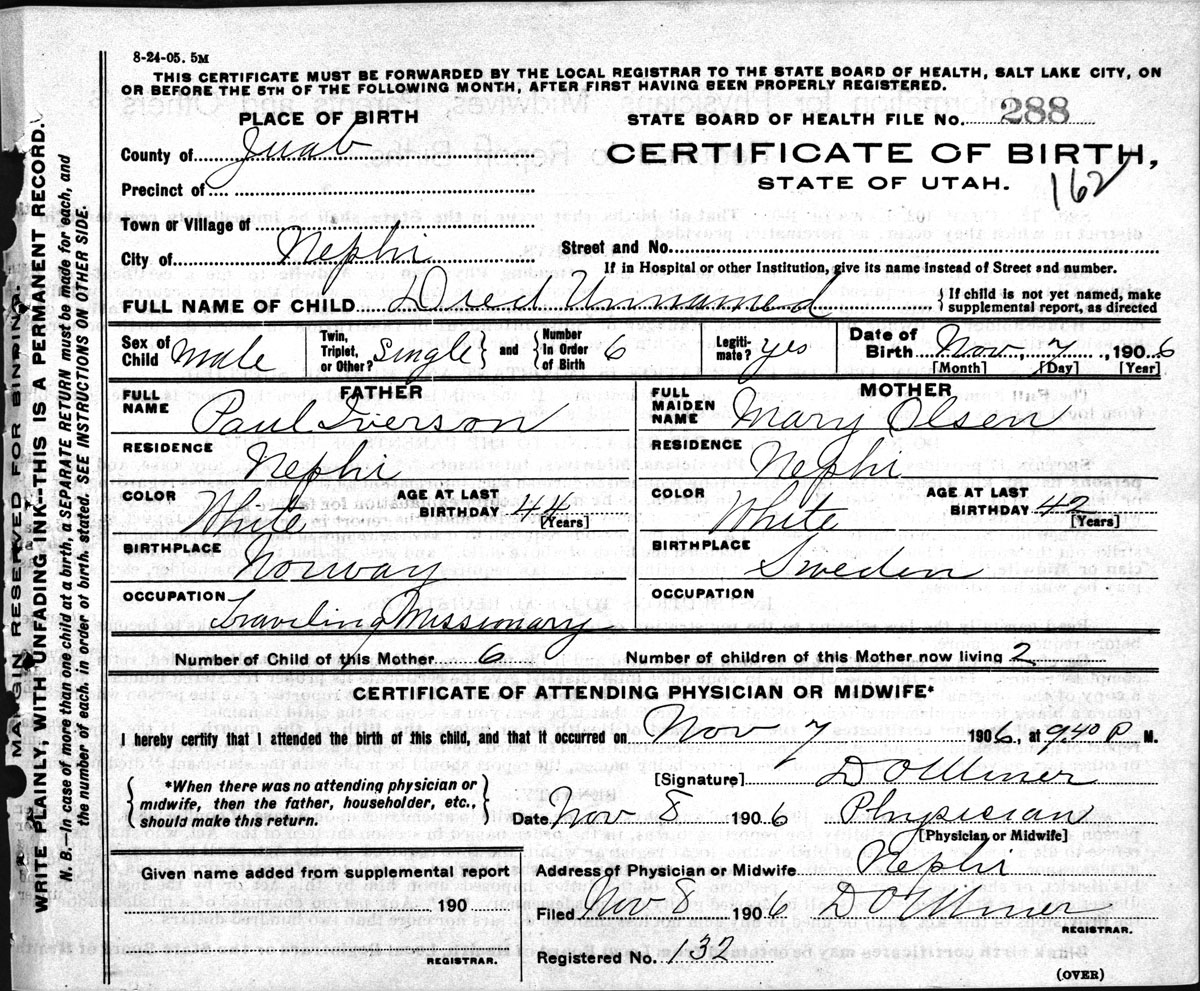 8-24-05. 5M
THIS CERTIFICATE MUST BE FORWARDED BY THE LOCAL REGISTRAR TO THE STATE BOARD OF HEALTH, SALT LAKE CITY, ON
OR BEFORE THE 5TH OF THE FOLLOWING MONTH, AFTER FIRST HAVING BEEN PROPERLY REGISTERED.
MARGIN RESERVED FOR BINDING
WRITE PLAINLY, WITH UNFADING INK—THIS IS A PERMANENT RECORD.
N. B.—In case of more than one child at a birth, a SEPARATE RETURN must be made for each, and
the number of each, in order of birth, stated. SEE INSTRUCTIONS ON OTHER SIDE.
PLACE OF BIRTH
STATE BOARD OF HEALTH FILE NO. 288
County of Juab
CERTIFICATE OF BIRTH,
STATE OF UTAH.
162
Precinct of
Town or Village of
City of Nephi
Street and No.
If in Hospital or other Institution, give its name instead of Street and number.
FULL NAME OF CHILD Died Unnamed { If child is not yet named, make
supplemental report, as directed
Sex of Child Male
Twin, Triplet, or Other? Single } and { Number In Order of Birth 6
Legitimate? yes
Date of Birth Nov, 7, 1906
[Month] [Day] [Year]
FATHER
FULL NAME Paul Iverson
RESIDENCE Nephi
COLOR White AGE AT LAST BIRTHDAY 44
[Years]
BIRTHPLACE Norway
OCCUPATION Traveling Missionary
MOTHER
FULL MAIDEN NAME Mary Olsen
RESIDENCE Nephi
COLOR White AGE AT LAST BIRTHDAY 42
[Years]
BIRTHPLACE Sweden
OCCUPATION
Number of Child of this Mother 6 Number of children of this Mother now living 2
CERTIFICATE OF ATTENDING PHYSICIAN OR MIDWIFE*
I hereby certify that I attended the birth of this child, and that it occurred on Nov 7 1906, at 940 P. M.
{ *When there was no attending physician or
midwife, then the father, householder, etc.,
should make this return. }
[Signature] D O Miner
Date Nov 8 1906 Physician
[Physician or Midwife]
Given name added from supplemental report
190
REGISTRAR.
Address of Physician or Midwife Nephi
Filed Nov 8 1906 D O Miner
REGISTRAR.
Registered No. 132
(OVER)